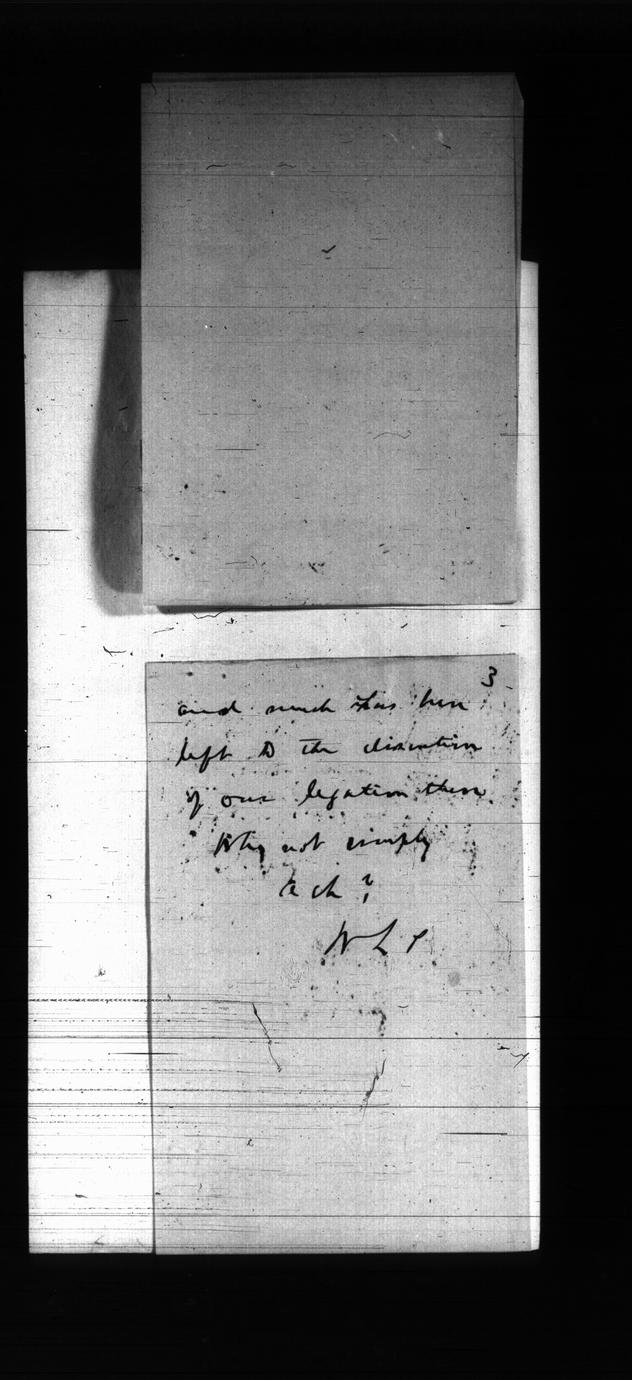 3
and much has been
left to the discretion
of our legation there.
Why not simply
ack?
W L P